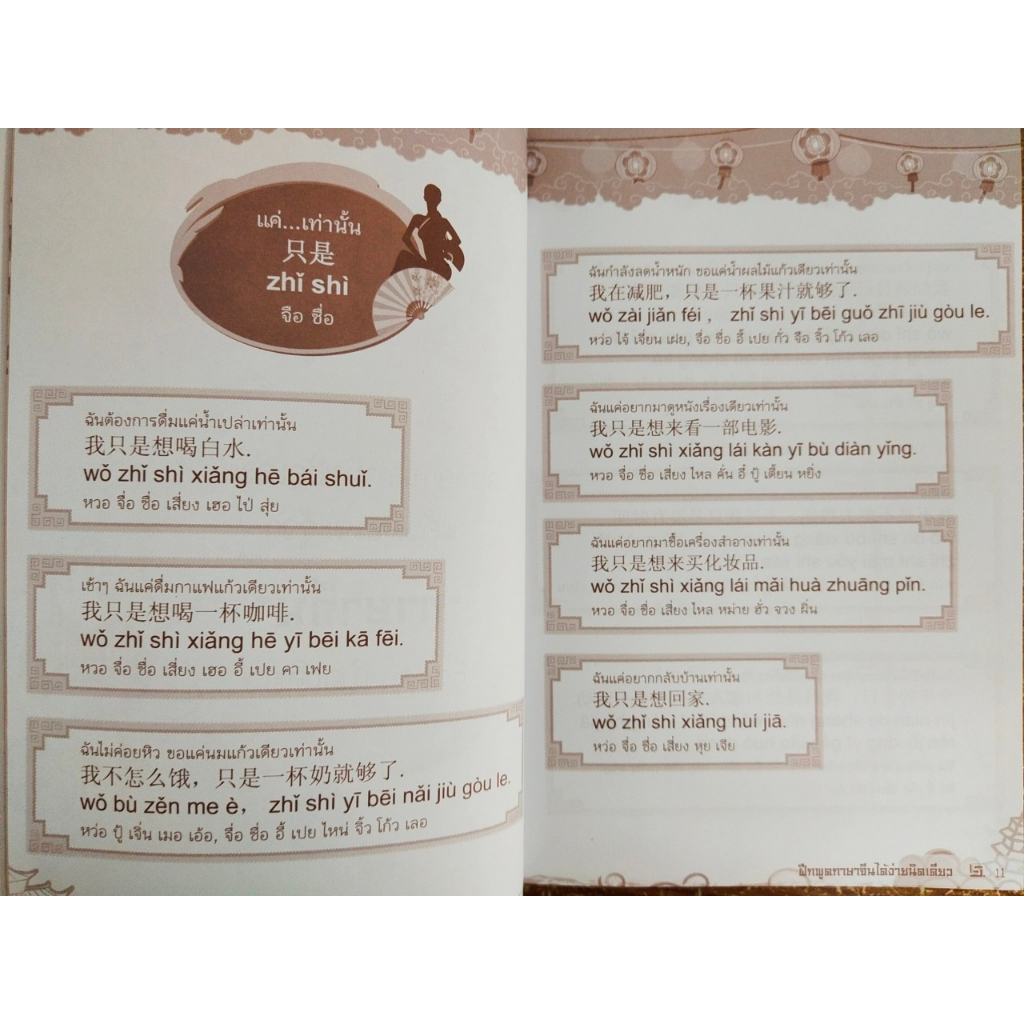 แค่...เท่านั้น
只是
zhǐ shì
จือ ซื่อ
ฉันต้องการดื่มแค่น้ำเปล่าเท่านั้น
我只是想喝白水.
wǒ zhǐ shì xiǎng hē bái shuǐ.
หวอ จื่อ ซื่อ เสี่ยง เฮอ ไป๋ สุ่ย
เช้าๆ ฉันแค่ดื่มกาแฟแก้วเดียวเท่านั้น
我只是想喝一杯咖啡.
wǒ zhǐ shì xiǎng hē yī bēi kā fēi.
หวอ จื่อ ซื่อ เสี่ยง เฮอ อี้ เปย คา เฟย
ฉันไม่ค่อยหิว ขอแค่นมแก้วเดียวเท่านั้น
我不怎么饿，只是一杯奶就够了.
wǒ bù zěn me è， zhǐ shì yī bēi nǎi jiù gòu le.
หว่อ ปู้ เจิ่น เมอ เอ้อ, จื่อ ซื่อ อี้ เปย ไหน่ จิ้ว โก้ว เลอ
ฉันกำลังลดน้ำหนัก ขอแค่น้ำผลไม้แก้วเดียวเท่านั้น
我在减肥，只是一杯果汁就够了.
wǒ zài jiǎn féi， zhǐ shì yī bēi guǒ zhī jiù gòu le.
หว่อ ไจ้ เจี่ยน เฝย, จื่อ ซื่อ อี้ เปย กั่ว จือ จิ้ว โก้ว เลอ
ฉันแค่อยากมาดูหนังเรื่องเดียวเท่านั้น
我只是想来看一部电影.
wǒ zhǐ shì xiǎng lái kàn yī bù diàn yǐng.
หวอ จื่อ ซื่อ เสี่ยง ไหล คั่น อี้ ปู้ เตี้ยน หยิ่ง
ฉันแค่อยากมาซื้อเครื่องสำอางเท่านั้น
我只是想来买化妆品.
wǒ zhǐ shì xiǎng lái mǎi huà zhuāng pǐn.
หวอ จื่อ ซื่อ เสี่ยง ไหล หม่าย ฮั่ว จวง ผิ่น
ฉันแค่อยากกลับบ้านเท่านั้น
我只是想回家.
wǒ zhǐ shì xiǎng huí jiā.
หว่อ จื่อ ซื่อ เสี่ยง หุย เจีย
ฝึกพูดภาษาจีนได้ง่ายนิดเดียว
11